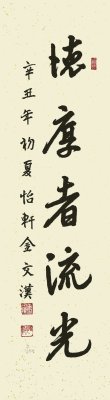 德厚者流光
辛丑年初夏怡軒金文漢